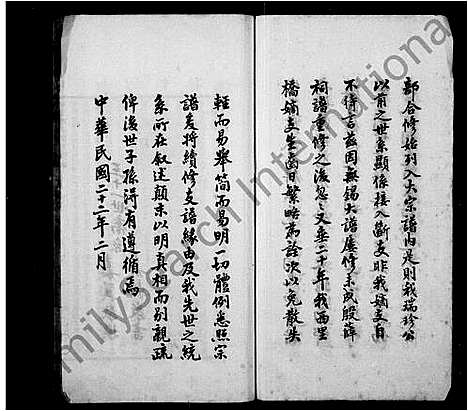 部合修始列入大宗譜內是則我瑞珍公
以前之世系顯係接入斷支非我嫡支自
不待言茲因無錫大譜屢修未成殷薛
祠譜重修之後忽又垂二十年我西里
橋嫡支生齒日繁略為詮次以免散失
輕而易舉簡而易明一切體例悉照宗
譜爰將續修支譜緣由及我先世之統
系所在叙述顛末以明真相而別親疏
俾後世子孫得有遵循焉
中華民國二十二年二月
FamilySearch International